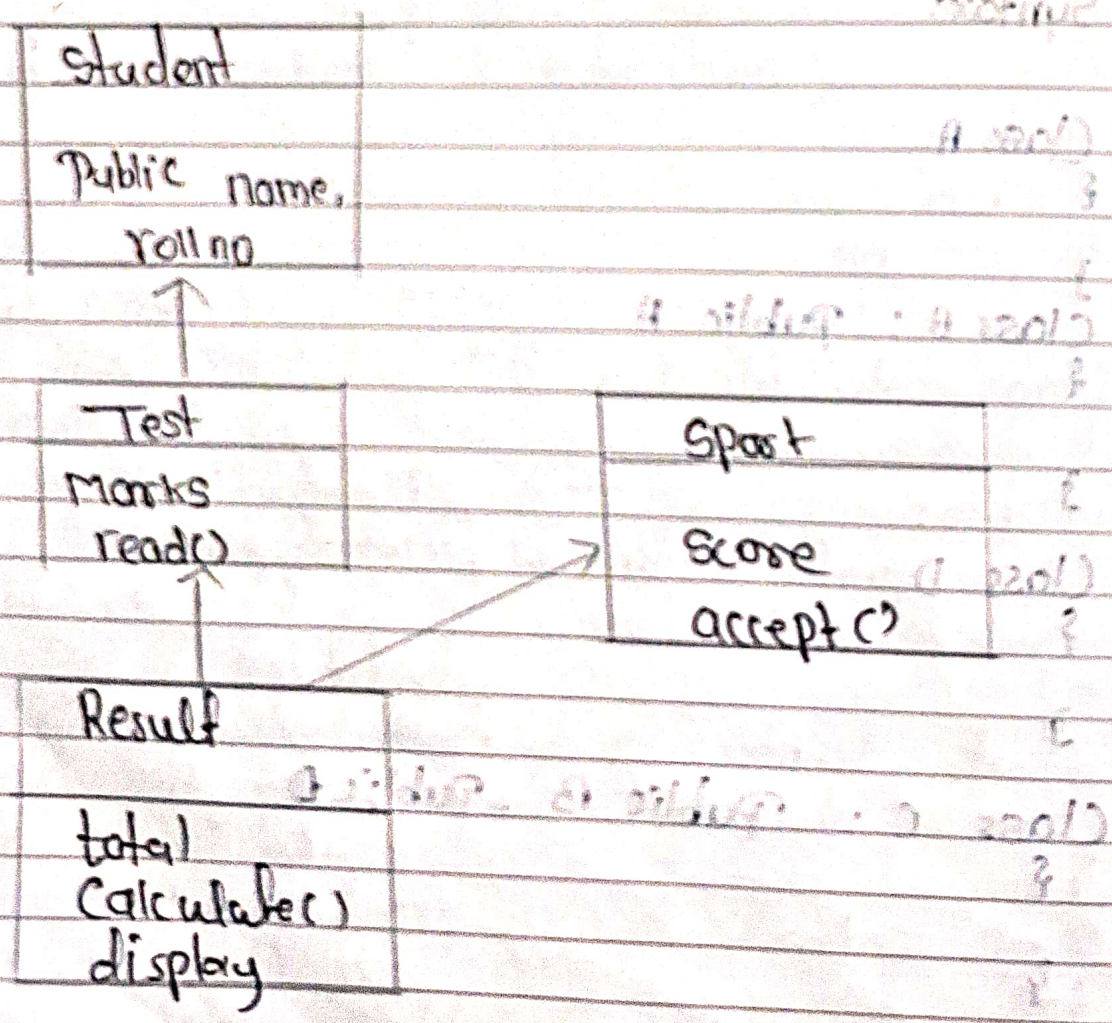 Student
Public name,
rollno
Test
Marks
read()
Sport
Score
accept()
Result
total
Calculate()
display